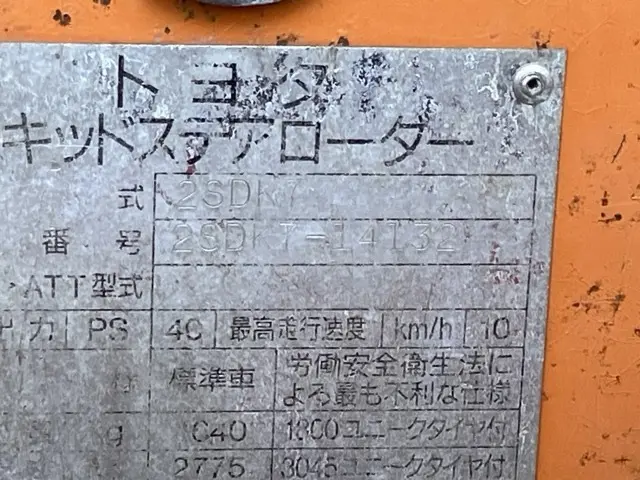 トヨタ
キッドステアローダー
式 2SDK7
番号 2SDK7-14132
ATT型式
力 PS 40 最高走行速度 km/h 10
様 標準車 労働安全衛生法に
よる最も不利な仕様
g 1800ユニークタイヤ付
2775 3045ユニークタイヤ付